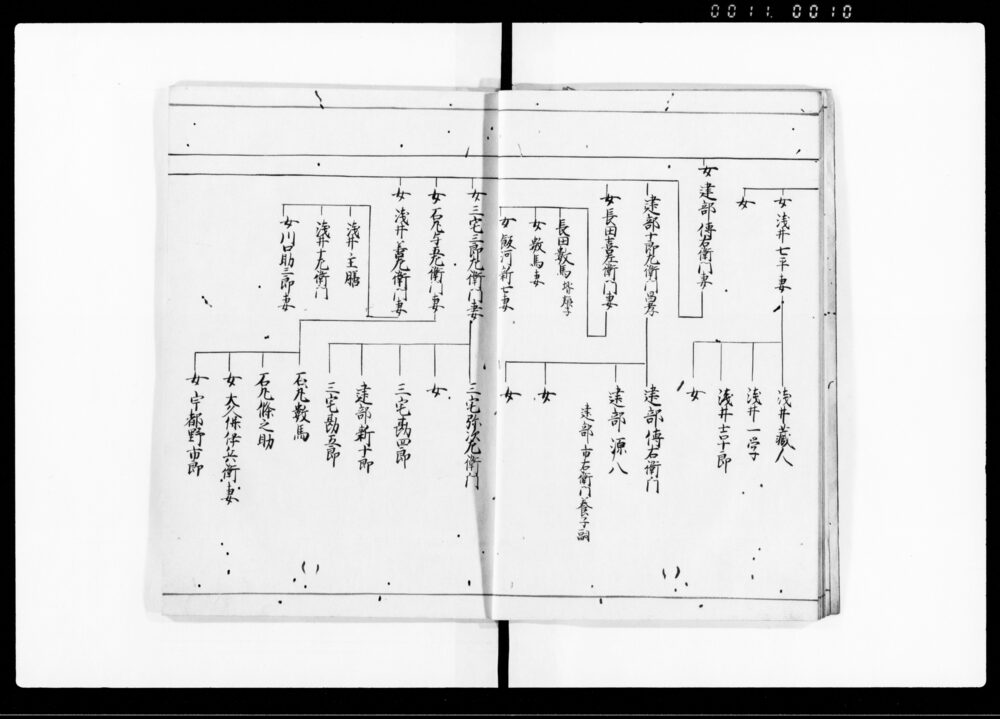 0011. 0010
女 浅井七平妻
女
浅井蔵人
浅井一学
浅井吉十郎
女
女 建部傳右衛門妻
建部十郎左衛門
建部傳右衛門
建部源八
建部市右衛門養子嗣
女
女
女 長田喜左衛門妻
長田数馬
女 数馬妻
女 飯河新七妻
女 三宅三郎左衛門妻
三宅弥次左衛門
女
三宅勘四郎
建部新十郎
三宅勘五郎
女 石丸与五左衛門妻
石丸数馬
石丸條之助
女 大久保伊兵衛妻
女 宇都野市郎
女 浅井善左衛門妻
浅井主膳
浅井十左衛門
女 川口助三郎妻